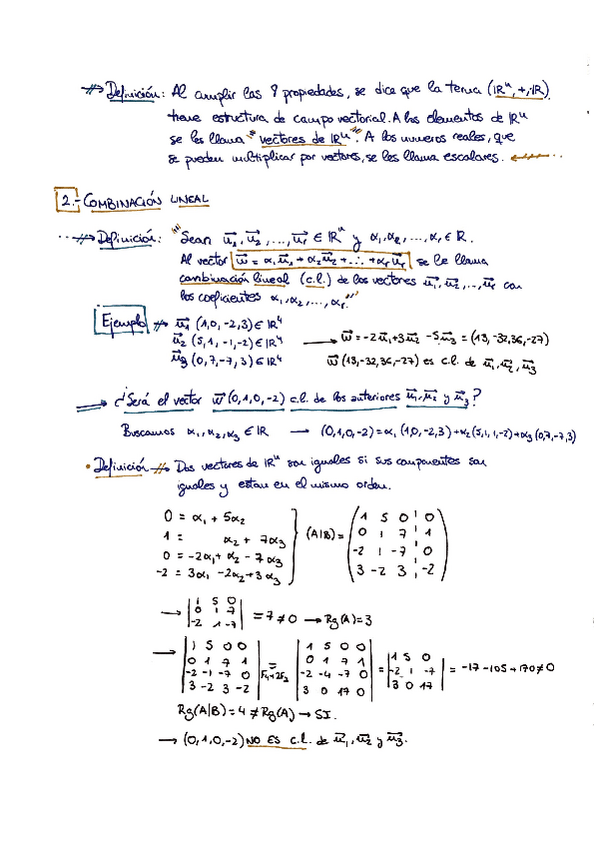 Definición: Al cumplir las 8 propiedades, se dice que la terna (ℝⁿ, +, ·ℝ)
tiene estructura de campo vectorial. A los elementos de ℝⁿ
se les llama "vectores de ℝⁿ". A los numeros reales, que
se pueden multiplicar por vectores, se les llama escalares.
2.- COMBINACIÓN LINEAL
Definición: "Sean u⃗₁, u⃗₂, ..., u⃗ᵣ ∈ ℝⁿ y α₁, α₂, ..., αᵣ ∈ ℝ.
Al vector w⃗ = α₁u⃗₁ + α₂u⃗₂ + ... + αᵣu⃗ᵣ se le llama
combinación lineal (c.l.) de los vectores u⃗₁, u⃗₂, ..., u⃗ᵣ con
los coeficientes α₁, α₂, ..., αᵣ."
Ejemplo → u⃗₁ (1,0,-2,3) ∈ ℝ⁴
u⃗₂ (5,1,-1,-2) ∈ ℝ⁴ → w⃗ = -2u⃗₁ + 3u⃗₂ - 5u⃗₃ = (13,-32,36,-27)
u⃗₃ (0,7,-7,3) ∈ ℝ⁴ w⃗ (13,-32,36,-27) es c.l. de u⃗₁, u⃗₂, u⃗₃
→ ¿Será el vector w⃗ (0,1,0,-2) c.l. de los anteriores u⃗₁, u⃗₂ y u⃗₃?
Buscamos α₁, α₂, α₃ ∈ ℝ → (0,1,0,-2) = α₁ (1,0,-2,3) + α₂ (5,1,1,-2) + α₃ (0,7,-7,3)
• Definición → Dos vectores de ℝⁿ son iguales si sus componentes son
iguales y estan en el mismo orden.
0 = α₁ + 5α₂
1 = α₂ + 7α₃
0 = -2α₁ + α₂ - 7α₃
-2 = 3α₁ - 2α₂ + 3α₃
(A|B) =
1 5 0 0
0 1 7 1
-2 1 -7 0
3 -2 3 -2
→ |
1 5 0
0 1 7
-2 1 -7
| = 7 ≠ 0 → Rg(A) = 3
→ |
1 5 0 0
0 1 7 1
-2 -1 -7 0
3 -2 3 -2
| = F₄+2F₂ |
1 5 0 0
0 1 7 1
-2 -4 -7 0
3 0 17 0
| = |
1 5 0
-2 1 -7
3 0 17
| = -17 - 105 + 170 ≠ 0
Rg(A|B) = 4 ≠ Rg(A) → SI.
→ (0,1,0,-2) NO ES c.l. de u⃗₁, u⃗₂ y u⃗₃.